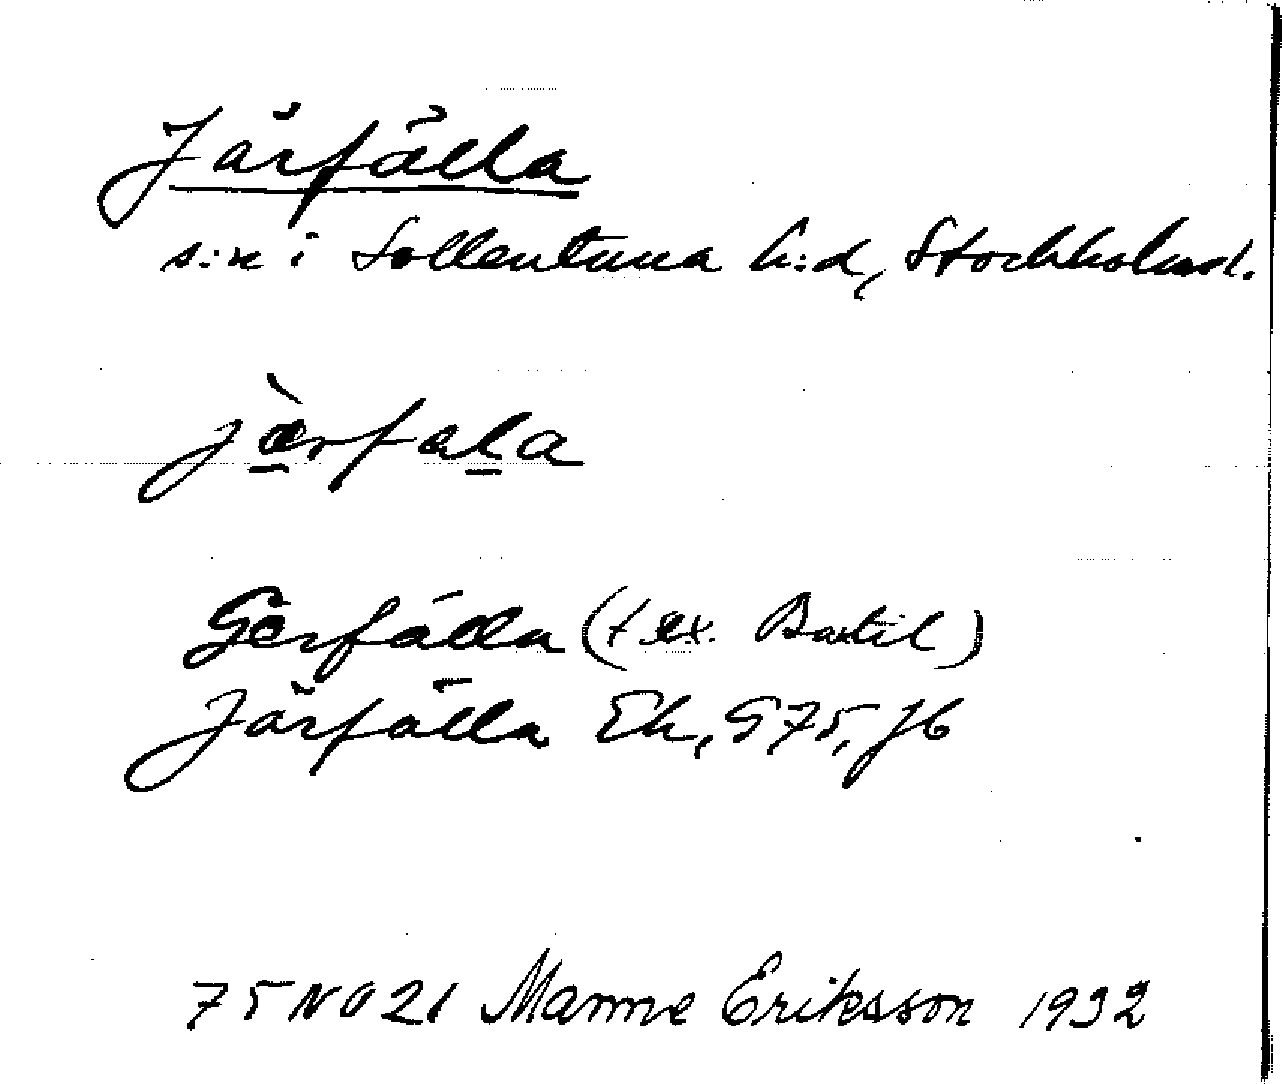 Järfälla
s:n i Sollentuna h:d, Stockholms l.
jæ̀rfala
Gerfälla (t ex. Bastil)
Järfälla Ek, G75, J6
75NO21 Manne Eriksson 1932